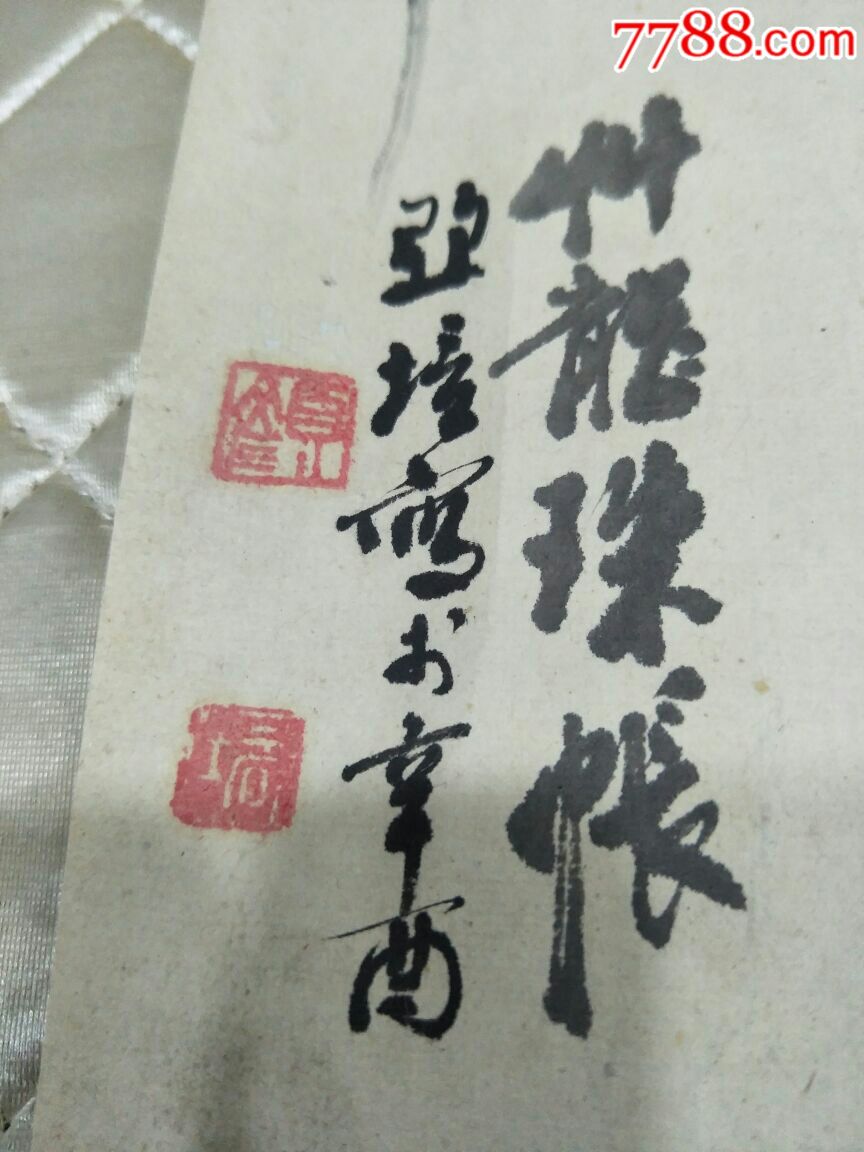 7788.com
艸龍珠帳
培寫於辛酉